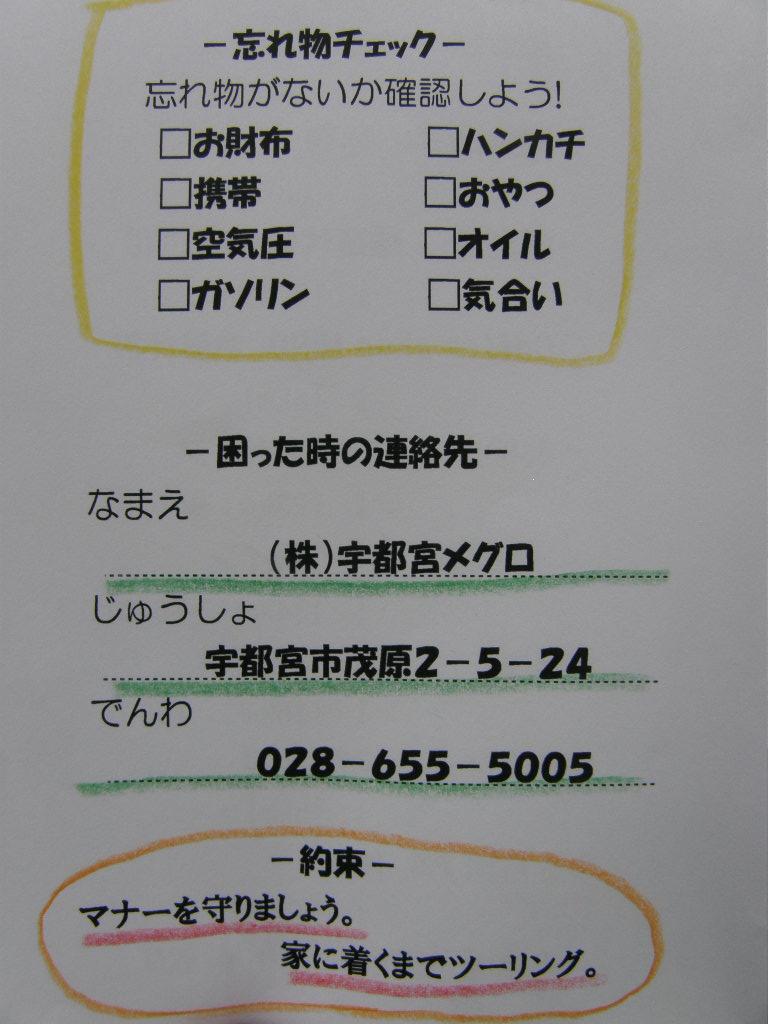 －忘れ物チェック－
忘れ物がないか確認しよう!
□お財布 □ハンカチ
□携帯 □おやつ
□空気圧 □オイル
□ガソリン □気合い
－困った時の連絡先－
なまえ
(株)宇都宮メグロ
じゅうしょ
宇都宮市茂原2－5－24
でんわ
028－655－5005
－約束－
マナーを守りましょう。
家に着くまでツーリング。